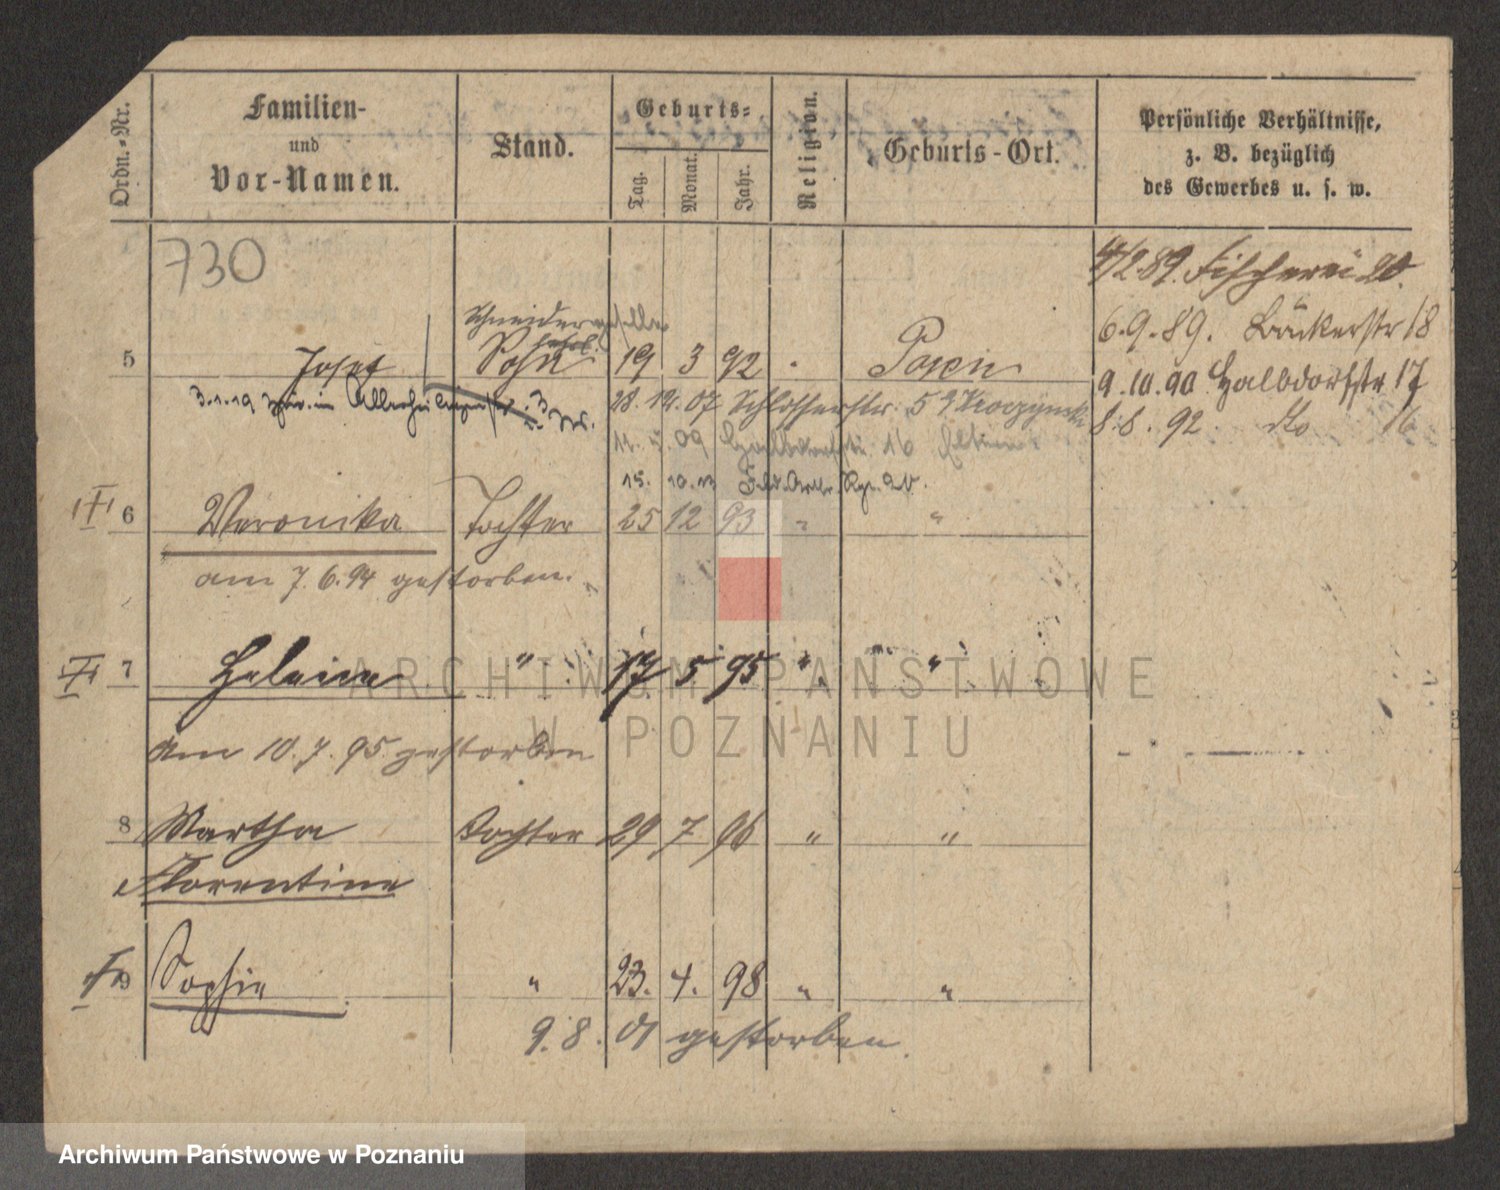 Ordn.-Nr.
Familien-
und
Vor-Namen.
Stand.
Geburts-
Tag.
Monat.
Jahr.
Religion.
Geburts-Ort.
Persönliche Verhältnisse,
z. B. bezüglich
des Gewerbes u. s. w.
730
4/2 89. Fischerei 20.
6.9.89. Bäckerstr 18
Schneidergeselle
5 Josef Sohn 19 3 92 Posen
9.10.90 Halbdorfstr 17
3.1.19 28.12.07 Schlosserstr. 5
8.8.92 do 16
11. 09 Halbdorfstr. 16 Eltern
15. 10.13 Feld. Artlr. Rgt. 20.
6 Veronika Tochter 25 12 93 " "
am 7.6.94 gestorben.
7 Heleine " 17 5 95 " "
am 10.7.95 gestorben
8 Martha Tochter 29 7 96 " "
Florentine
9 Sophie " 23. 4. 98 " "
9.8.01 gestorben.
ARCHIWUM PAŃSTWOWE
W POZNANIU
Archiwum Państwowe w Poznaniu